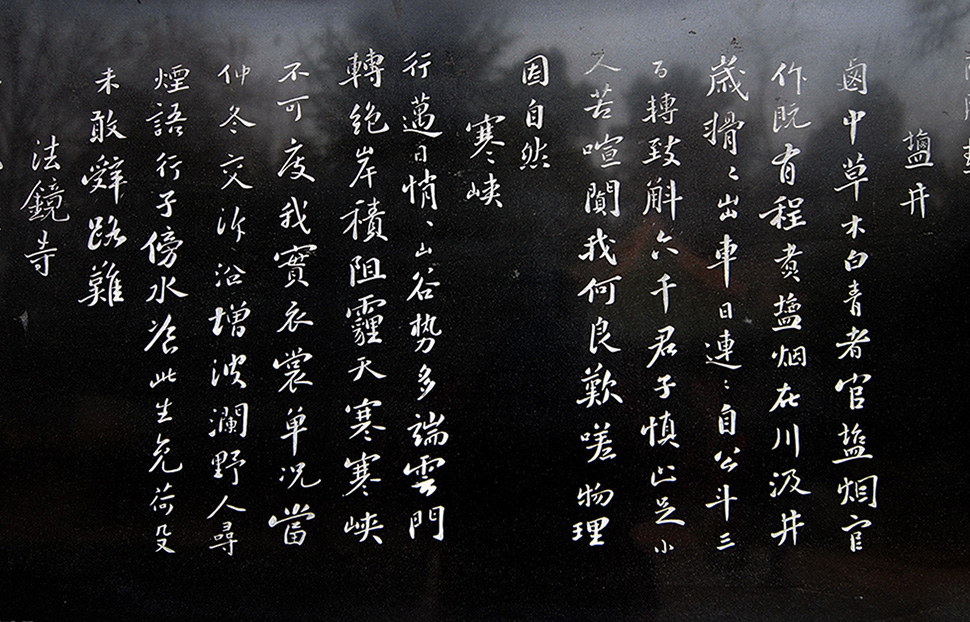 塩井
鹵中草木白青者官塩烟官
作既有程煮塩烟在川汲井
歲搰〻出車日連〻自公斗三
百轉致斛六千君子慎止足小
人苦喧闐我何良歎嗟物理
因自然
寒峡
行邁日悄〻山谷势多端雲門
轉絶岸積阻霾天寒寒峡
不可度我實衣裳单况當
仲冬交泝沿增波瀾野人尋
煙語行子傍水飡此生免荷殳
未敢辤路難
法鏡寺